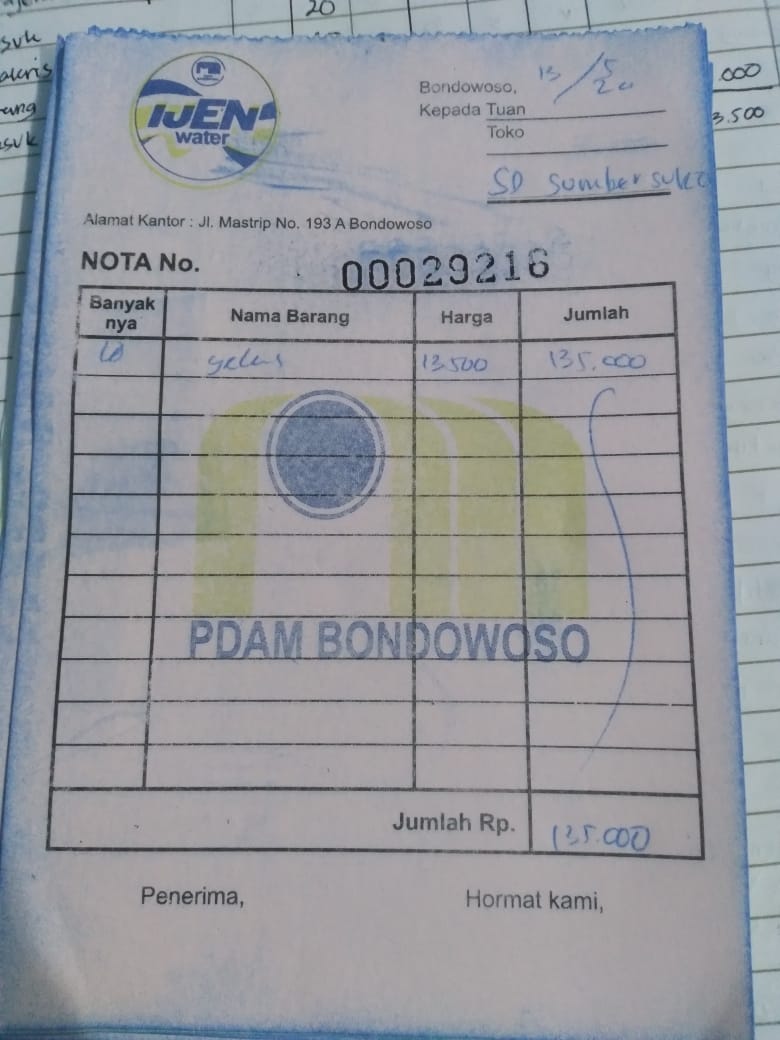 20
suk
akris
rang
suk
.000
3.500
IJEN
water
Bondowoso, 13/5
20
Kepada Tuan
Toko
SD Sumber suko
Alamat Kantor : Jl. Mastrip No. 193 A Bondowoso
NOTA No. 00029216
Banyak nya Nama Barang Harga Jumlah
10 gelas 13.500 135.000
PDAM BONDOWOSO
Jumlah Rp. 135.000
Penerima, Hormat kami,